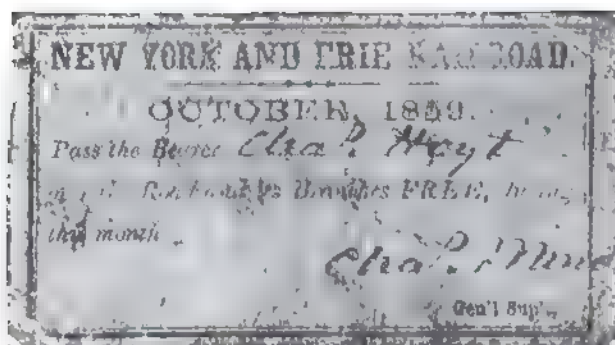 NEW YORK AND ERIE RAILROAD.
OCTOBER, 1859.
Pass the Bearer Chas. Hoyt
Branches FREE, during
this month
Chas. Min
Gen'l Sup't.